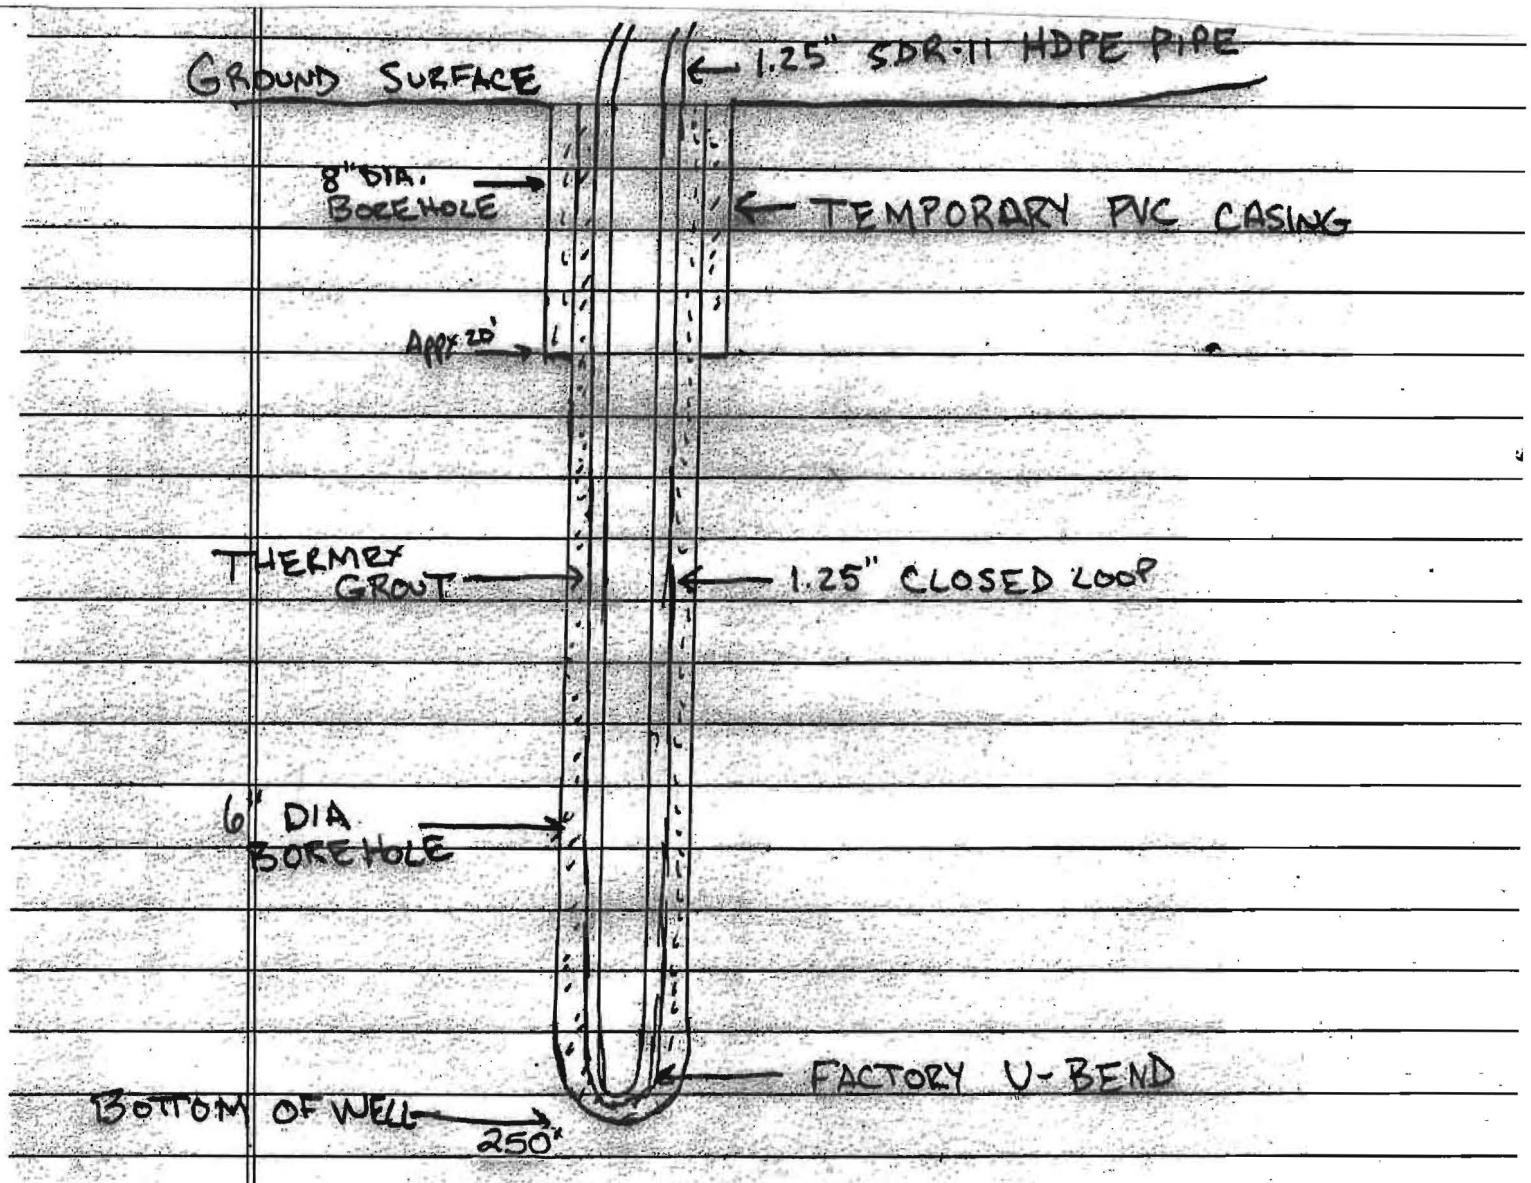 1.25" SDR-11 HDPE PIPE
GROUND SURFACE
8" DIA.
BOREHOLE
TEMPORARY PVC CASING
Appx 20'
THERMEX
GROUT
1.25" CLOSED LOOP
6" DIA
BOREHOLE
FACTORY U-BEND
BOTTOM OF WELL
250'